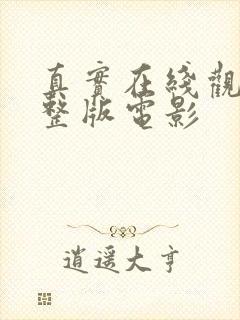 真實在綫觀
整版電影
逍遥大亨